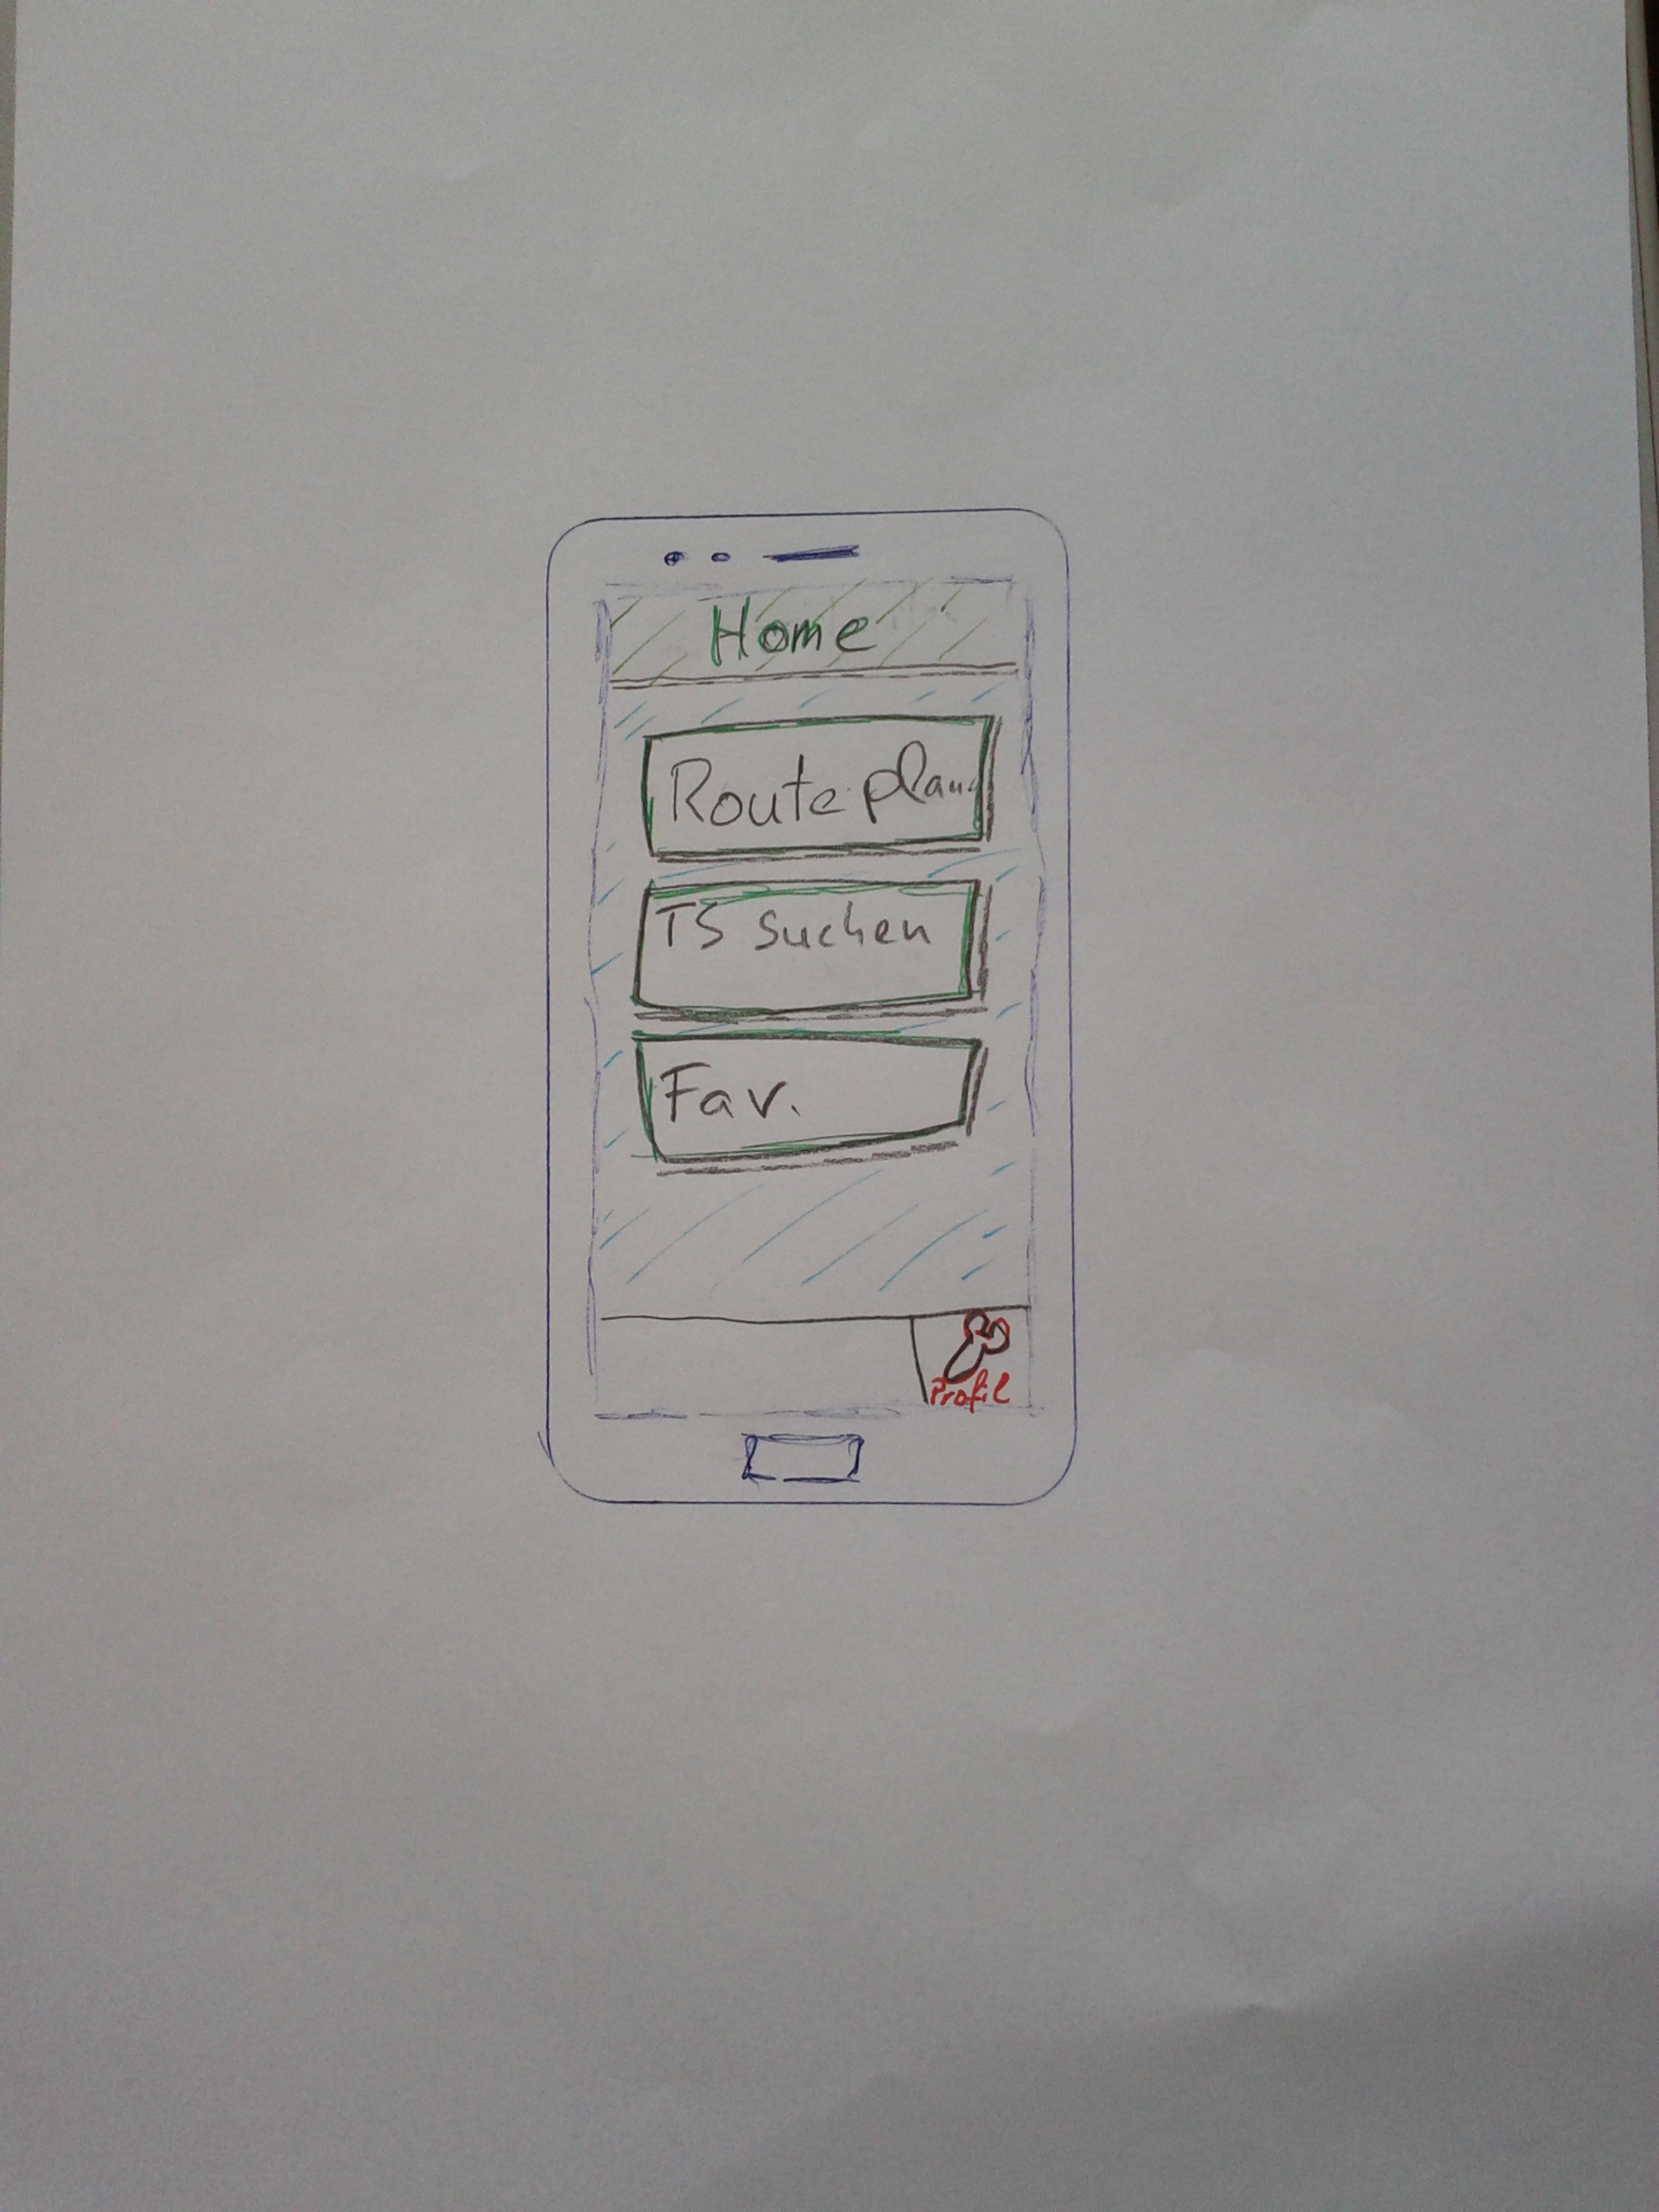 Home
Route plan.
TS suchen
Fav.
Profil